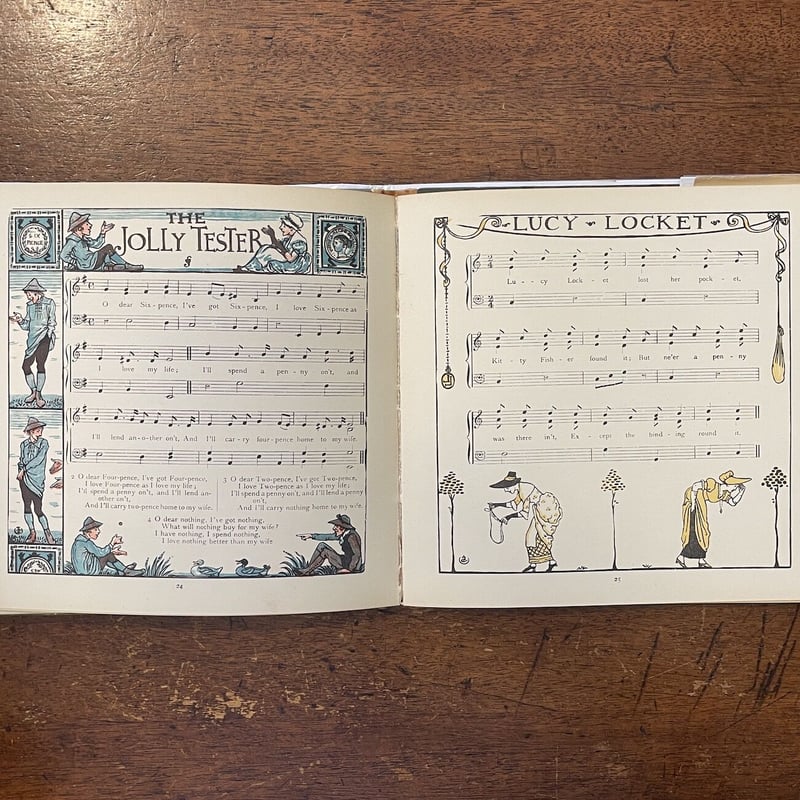 THE
JOLLY TESTER
O dear Six-pence, I've got Sixpence, I love Six-pence as
I love my life; I'll spend a pen-ny on't, and
I'll lend an-o-ther on't, And I'll car-ry four-pence home to my wife.
2 O dear Four-pence, I've got Four-pence,
I love Four-pence as I love my life;
I'll spend a penny on't, and I'll lend an-
other on't,
And I'll carry two-pence home to my wife.
3 O dear Two-pence, I've got Two-pence,
I love Two-pence as I love my life;
I'll spend a penny on't, and I'll lend a penny
on't,
And I'll carry nothing home to my wife.
4 O dear nothing, I've got nothing,
What will nothing buy for my wife?
I have nothing, I spend nothing,
I love nothing better than my wife
24
LUCY LOCKET
Lu-cy Lock-et lost her pock-et,
Kit-ty Fish-er found it; But ne'er a pen-ny
was there in't, Ex-cept the bind-ing round it.
25